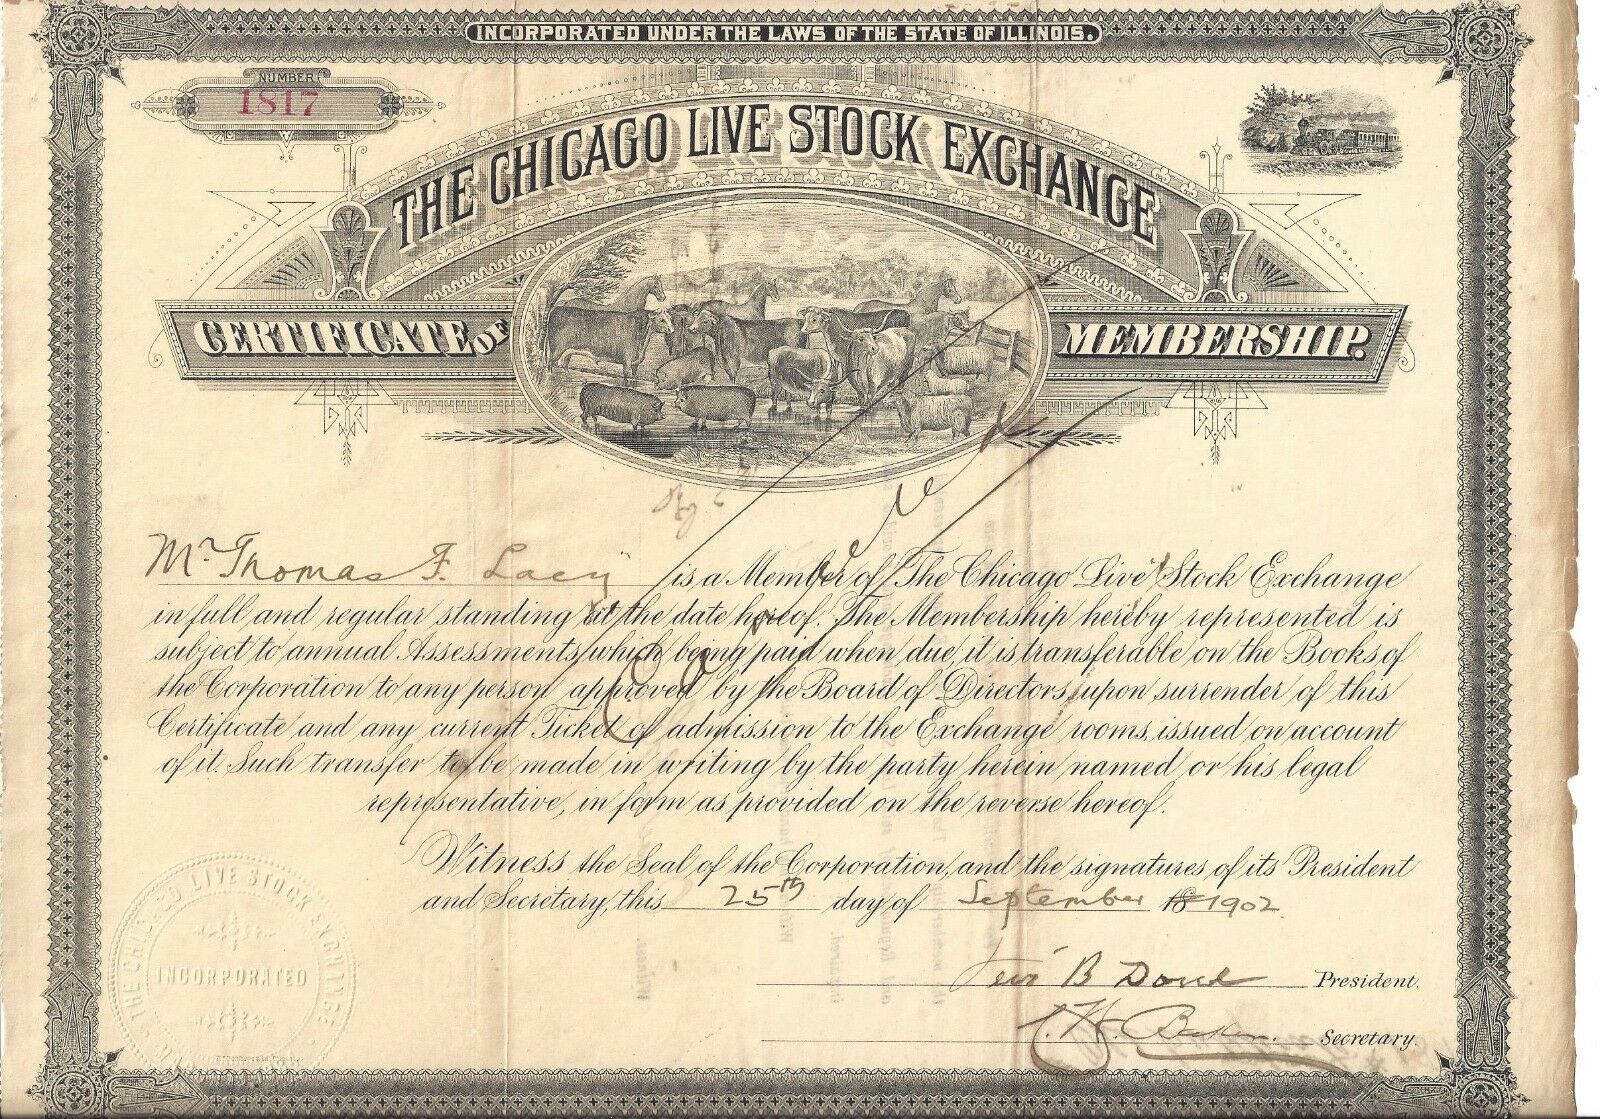 INCORPORATED UNDER THE LAWS OF THE STATE OF ILLINOIS.
NUMBER
1817
THE CHICAGO LIVE STOCK EXCHANGE
CERTIFICATE OF MEMBERSHIP.
Mr Thomas F. Lacy is a Member of The Chicago Live Stock Exchange
in full and regular standing at the date hereof. The Membership hereby represented is
subject to annual Assessments, which being paid when due, it is transferable on the Books of
the Corporation to any person approved by the Board of Directors, upon surrender of this
Certificate and any current Ticket of admission to the Exchange rooms, issued on account
of it. Such transfer to be made in writing by the party herein named or his legal
representative, in form as provided on the reverse hereof.
Cancelled
Witness the Seal of the Corporation, and the signatures of its President
and Secretary, this 25th day of September 18 1902
Levi B Doud President.
C. W. Baker. Secretary.
THE CHICAGO LIVE STOCK EXCHANGE
INCORPORATED